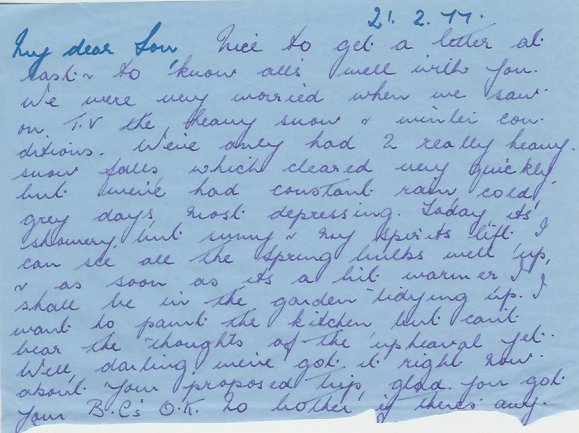 21. 2. 77.
My dear Son, Nice to get a letter at
last & to know all's well with you.
We were very worried when we saw
on T.V the heavy snow & winter con
ditions. We've only had 2 really heavy
snow falls which cleared very quickly
but we've had constant rain, cold,
grey days, most depressing. Today its
showery, but sunny & my spirits lift. I
can see all the spring bulbs well up,
& as soon as its a bit warmer I
shall be in the garden tidying up. I
want to paint the kitchen but can't
bear the thoughts of the upheaval yet.
Well, darling we've got it right now
about your proposed trip, glad you got
your B.C's O.K. No bother, if there's any.